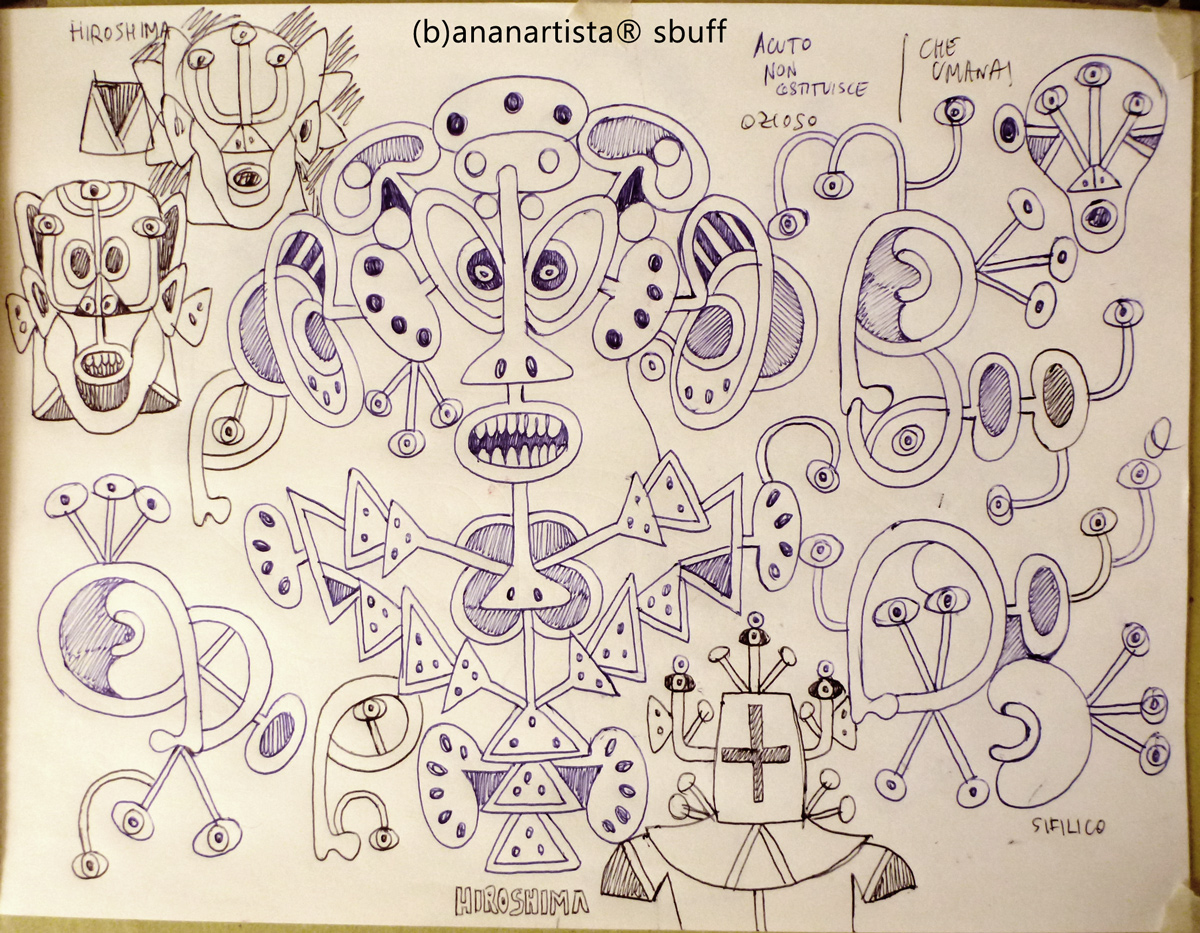 HIROSHIMA
(b)ananartista® sbuff
ACUTO
NON
COSTITUISCE
OZIOSO
CHE
UMANA!
SIFILICO
HIROSHIMA